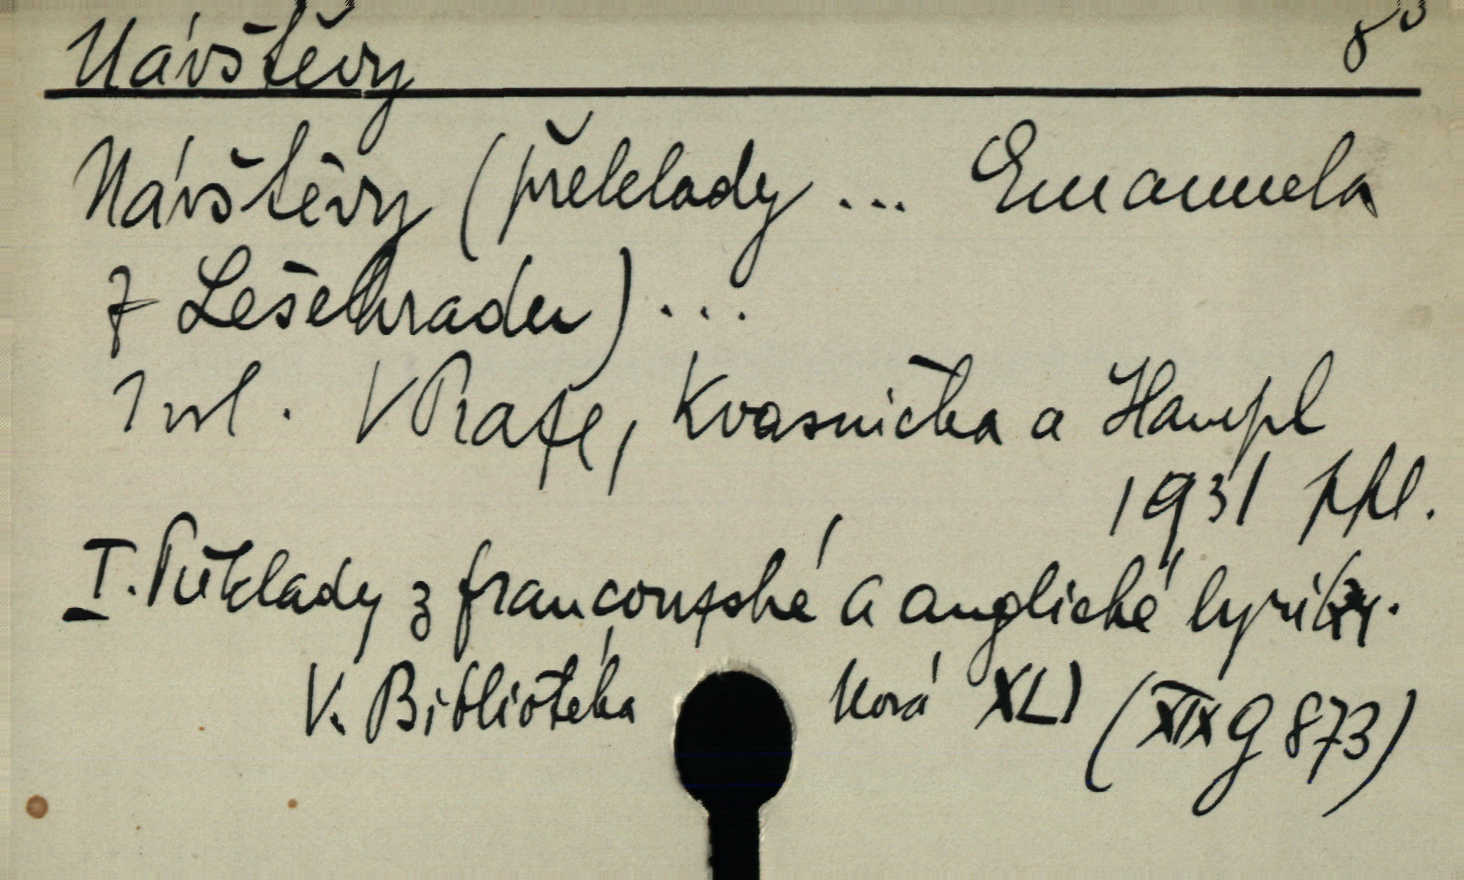 Návštěvy 8°
Návštěvy (překlady ... Emanuela
z Lešehradu) ...
1 sv. V Praze, Kvasnička a Hampl
1931 ppl.
I. Překlady z francouzské a anglické lyriky.
V. Biblioteka Nová XLI (XIX g 873)